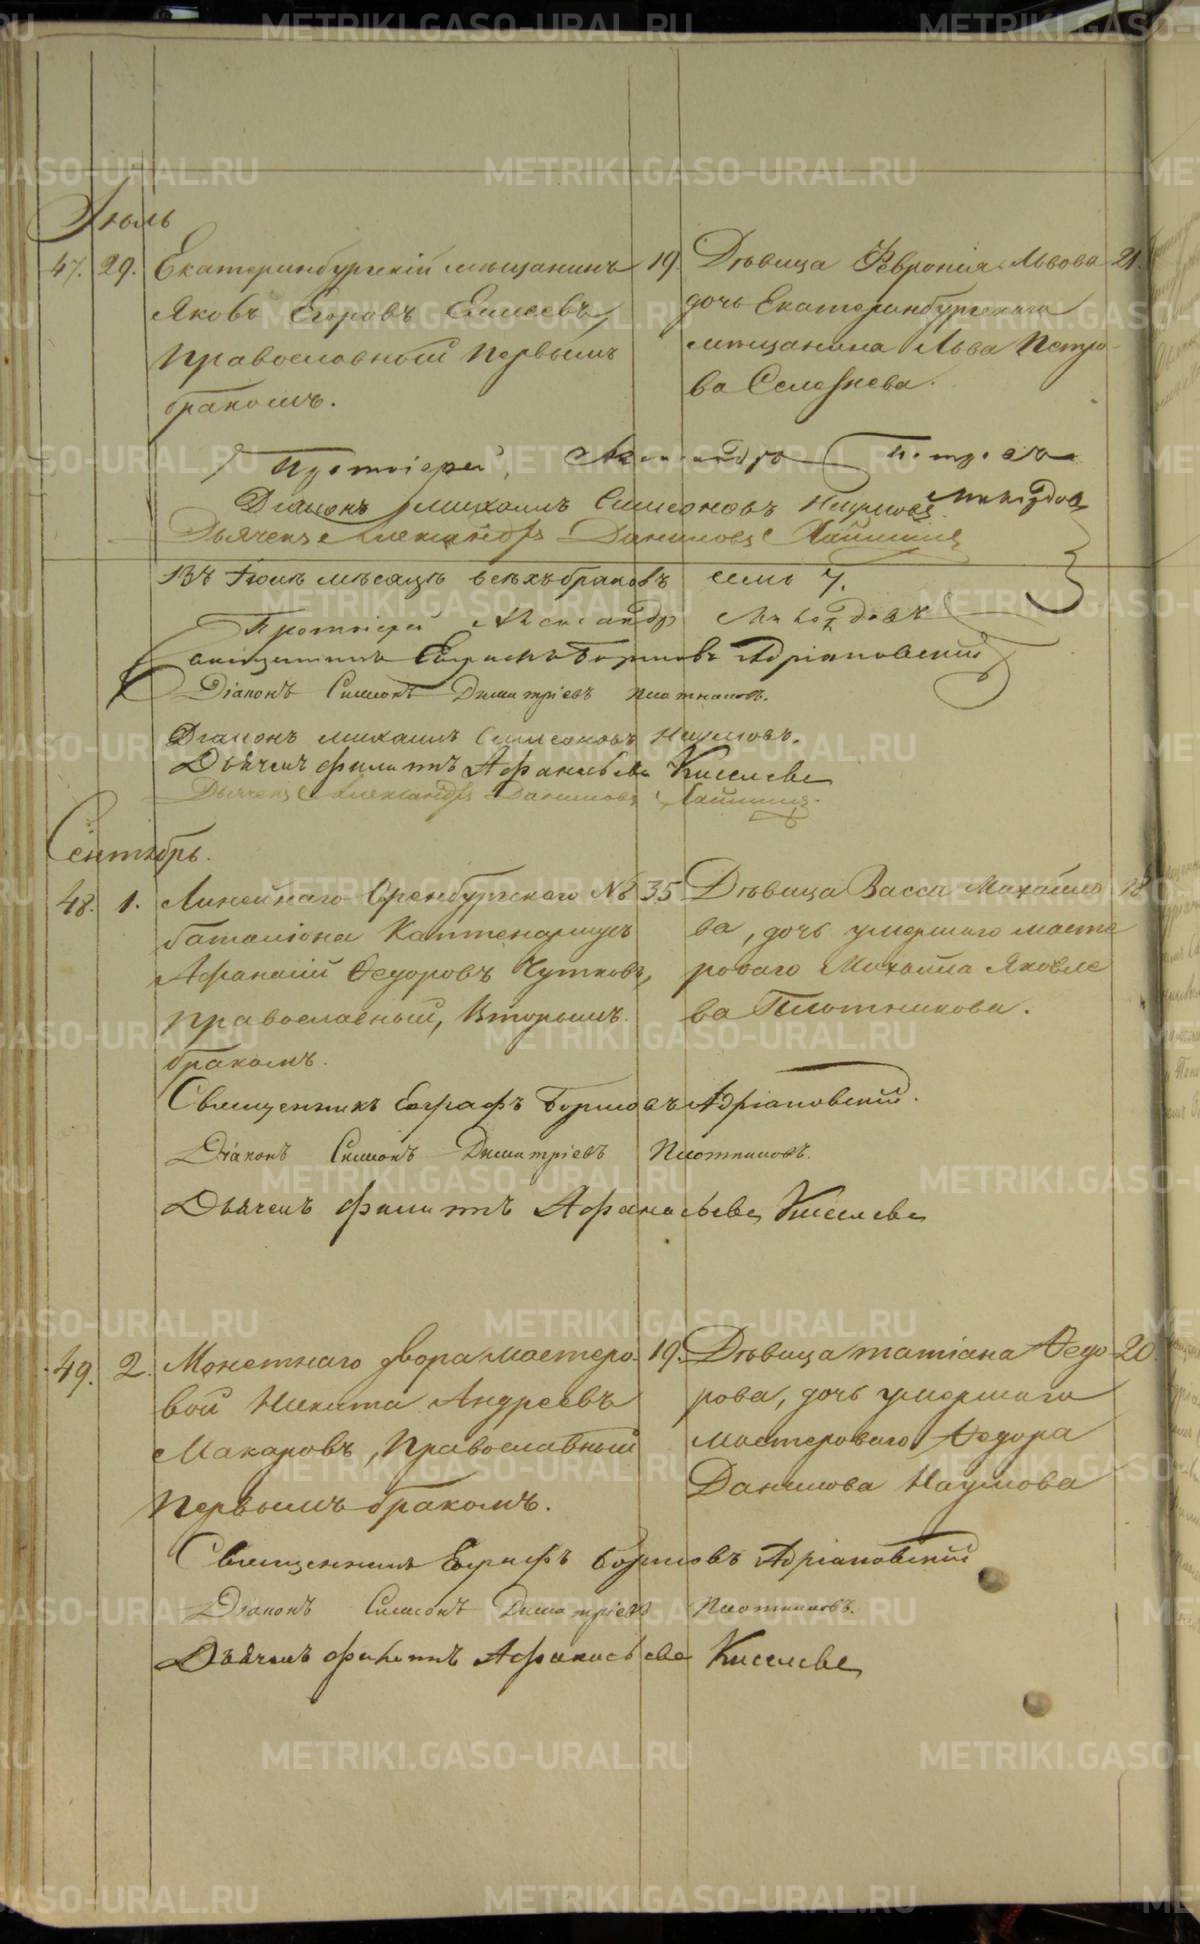 Іюль
47. 29. Екатеринбургскій мѣщанинъ 19. Дѣвица Февронія Львова 21.
Яковъ Егоровъ Елисеевъ, дочь Екатеринбургскаго
православный первымъ мѣщанина Льва Петро-
бракомъ. ва Селезнева.
Протоіерей Александръ Петровъ
Діаконъ Михаилъ Симеоновъ Наумовъ
Дьячекъ Александръ Даниловъ
Въ Іюлѣ мѣсяцѣ всѣхъ браковъ семь 7.
Протоіерей Александръ
священникъ Евграфъ Борисовъ Адріановскій
Діаконъ Симеонъ Димитріевъ Плотниковъ.
Діаконъ Михаилъ Симеоновъ Наумовъ.
Дьячекъ Филиппъ Афанасьевъ Киселевъ
Дьячекъ Александръ Даниловъ
Сентябрь.
48. 1. Линейнаго Оренбургскаго № 35 Дѣвица Васса Михайло 18
баталіона Каптенармусъ ва, дочь умершаго масте
Афанасій Ѳедоровъ Чутковъ, роваго Михайла Яковле
православный, вторымъ ва Плотникова.
бракомъ.
Священникъ Евграфъ Борисовъ Адріановскій.
Діаконъ Симеонъ Димитріевъ Плотниковъ.
Дьячекъ Филиппъ Афанасьевъ Киселевъ
49. 2. Монетнаго двора мастеро- 19. Дѣвица Татіана Ѳедо- 20.
вой Никита Андреевъ рова, дочь умершаго
Макаровъ, православный мастероваго Ѳедора
первымъ бракомъ. Данилова Наумова
Священникъ Евграфъ Борисовъ Адріановскій
Діаконъ Симеонъ Димитріевъ Плотниковъ.
Дьячекъ Филиппъ Афанасьевъ Киселевъ
METRIKI.GASO-URAL.RU